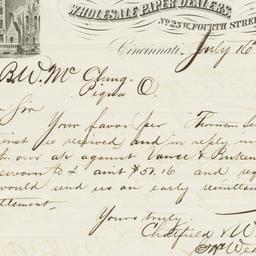 WHOLESALE PAPER DEALERS
No 25 W. FOURTH STREE
Cincinnati. July 16
B. W. Mc Clung.
Piqua O
Sir
Your favor per
is received and in reply
our a/c against Vance &
sworn to & amt $50.16 and
would send us an early remittan
ttlement.
Yours truly.
Chatfield & W